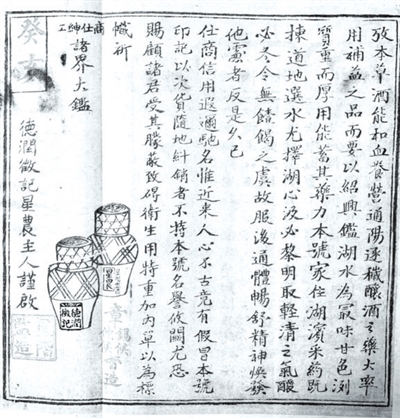 攷本草酒能和血養營通陽逐穢釀酒之藥大率
用補益之品而要以紹興鑑湖水為最味甘色冽
質重而厚用能蓄其藥力本號家住湖濱采葯既
揀道地選水尤擇湖心汲必黎明取輕清之氣釀
必冬令無饐餲之虞故服後通體暢舒精神煥發
他處者反是久已
仕商信用遐邇馳名惟近來人心不古竟有假冒本號
印記以次貨隨地糾銷者不特本號名譽攸關尤恐
賜顧諸君受其朦蔽致碍衛生用特重加內單以為標
幟祈
商仕紳工
諸界大鑑
德潤徵記星農主人謹啟
德潤徵記